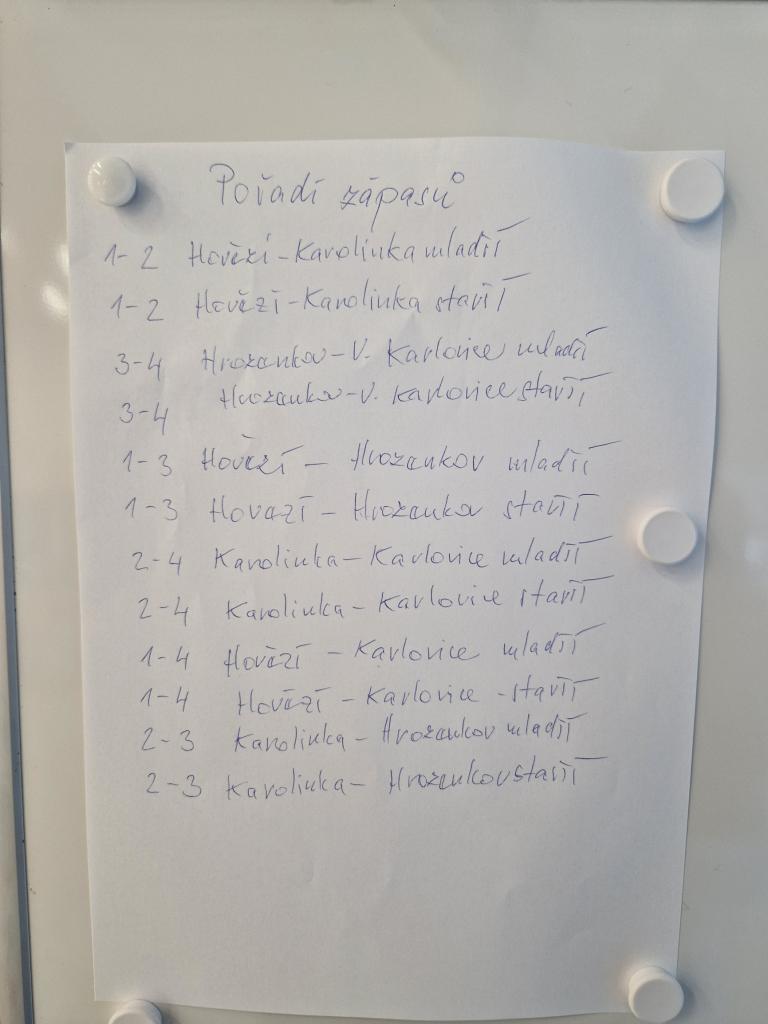 Pořadí zápasů
1-2 Hovězí - Karolinka mladší
1-2 Hovězí - Karolinka starší
3-4 Hrozenkov - V. Karlovice mladší
3-4 Hrozenkov - V. Karlovice starší
1-3 Hovězí - Hrozenkov mladší
1-3 Hovězí - Hrozenkov starší
2-4 Karolinka - Karlovice mladší
2-4 Karolinka - Karlovice starší
1-4 Hovězí - Karlovice mladší
1-4 Hovězí - Karlovice - starší
2-3 Karolinka - Hrozenkov mladší
2-3 Karolinka - Hrozenkov starší